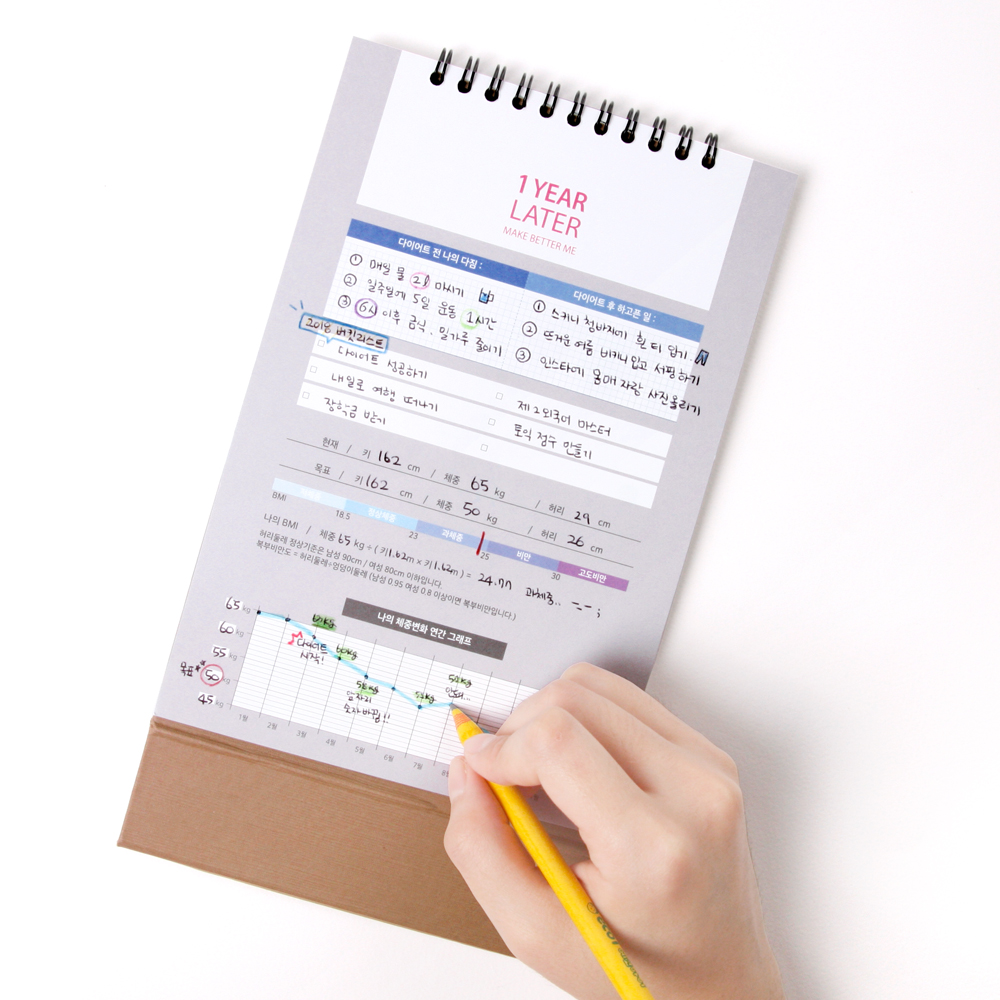 1 YEAR
LATER
MAKE BETTER ME
다이어트 전 나의 다짐 :
① 매일 물 2l 마시기
② 일주일에 5일 운동 1시간
③ 6시 이후 금식, 밀가루 줄이기
다이어트 후 하고픈 일 :
① 스키니 청바지에 흰 티 입기.
② 뜨거운 여름 비키니 입고 서핑하기
③ 인스타에 몸매 자랑 사진올리기
2018 버킷리스트
다이어트 성공하기
내일로 여행 떠나기
장학금 받기
제2외국어 마스터
토익 점수 만들기
현재 / 키 162 cm / 체중 65 kg / 허리 29 cm
목표 / 키 162 cm / 체중 50 kg / 허리 26 cm
BMI 정상체중 과체중 비만 고도비만
18.5 23 25 30
나의 BMI / 체중 65 kg ÷ ( 키 1.62 m × 키 1.62 m ) = 24.77 과체중.. -_-;
허리둘레 정상기준은 남성 90cm / 여성 80cm 이하입니다.
복부비만도 = 허리둘레÷엉덩이둘레 (남성 0.95 여성 0.8 이상이면 복부비만입니다.)
나의 체중변화 연간 그래프
65 kg
60 kg
55 kg
목표 50 kg
45 kg
다이어트
시작!
60kg
앞자리
숫자바뀜!!
안돼...
1월 2월 3월 4월 5월 6월 7월